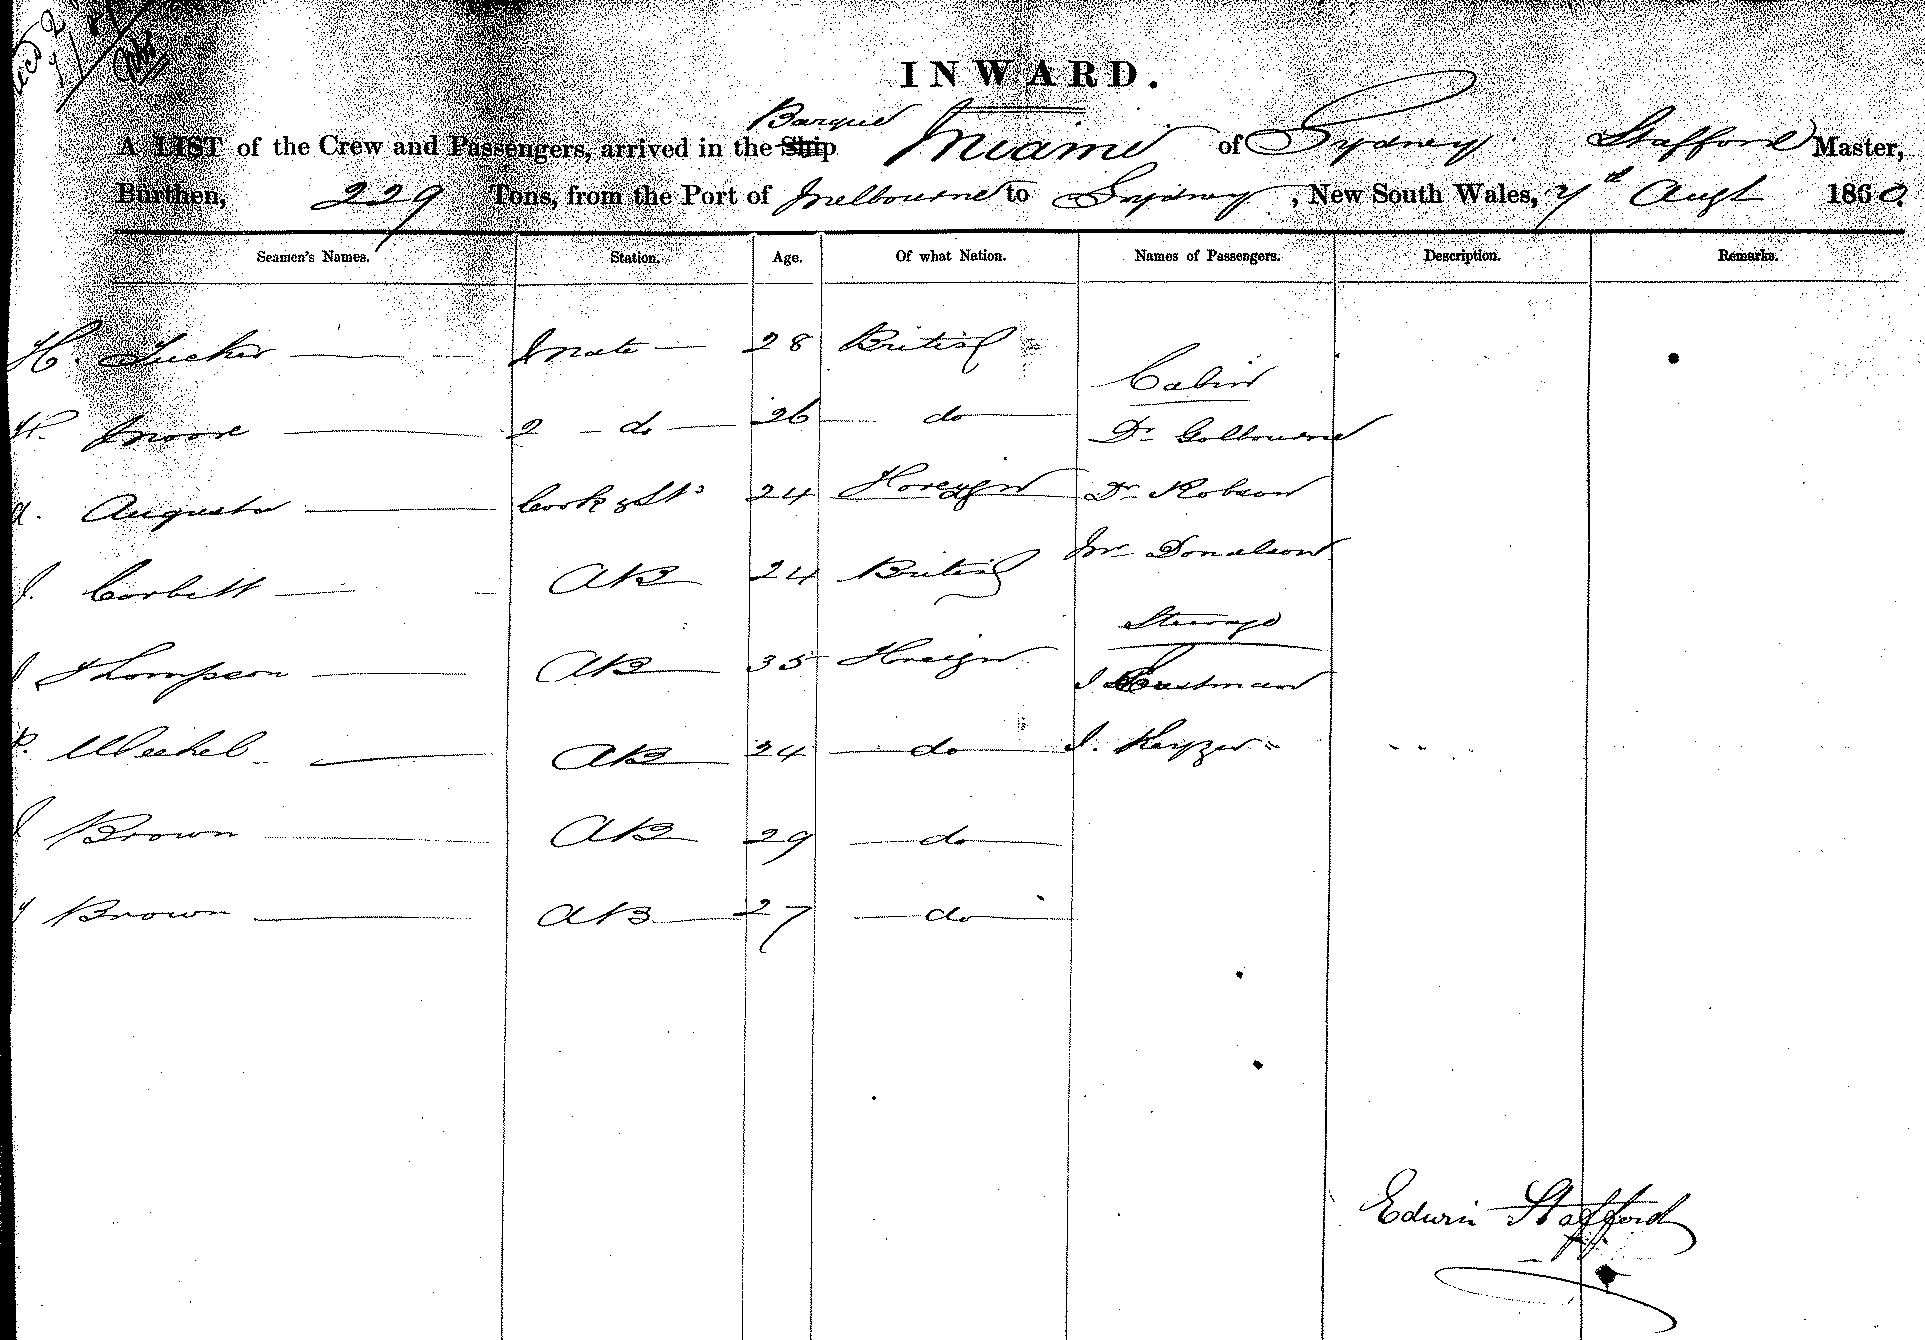 INWARD.
Barque
A LIST of the Crew and Passengers, arrived in the Ship Miami of Sydney Stafford Master,
Burthen, 229 Tons, from the Port of Melbourne to Sydney, New South Wales, 7th Augt 1860.
Seamen's Names. Station. Age. Of what Nation. Names of Passengers. Description. Remarks.
H. Tucker Mate 28 British
Cabin
Moore 2 do 26 do Dr Golbourne
A. Augusta Cook & St 24 Foreign Dr Robson
J. Corbett AB 24 British Mr Donalson
Steerage
J Thompson AB 35 Foreign J Eastman
P. AB 24 do J. Keyzer
J Brown AB 29 do
J Brown AB 27 do
Edwin Stafford